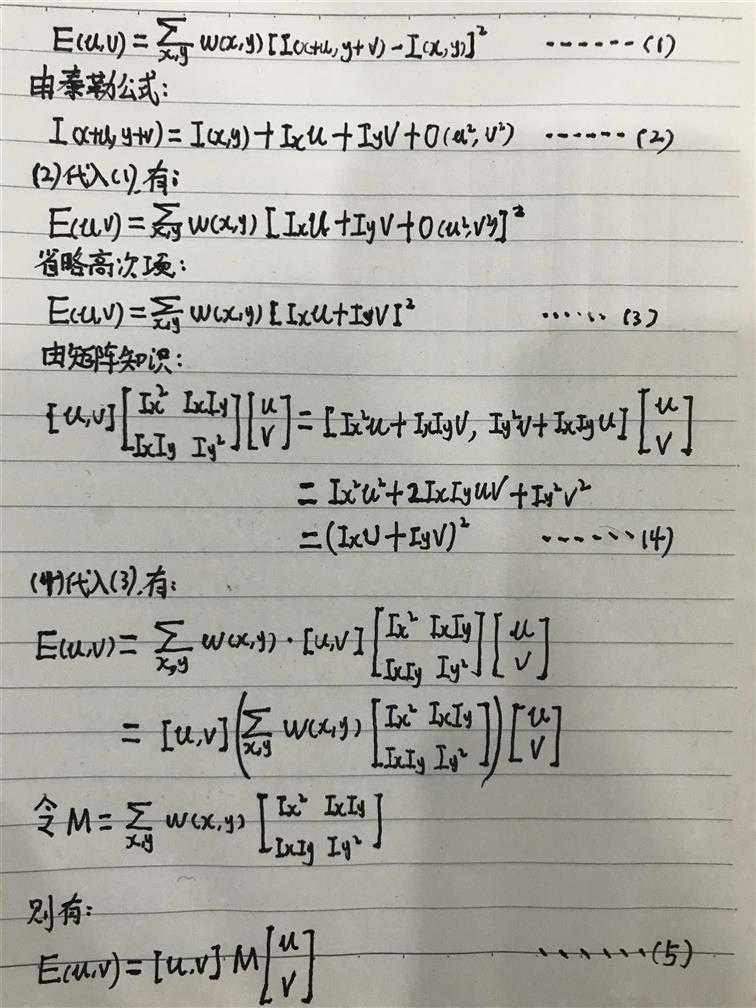 E(u,v) = ∑x,y w(x,y) [I(x+u, y+v) - I(x,y)]² ······ (1)
由泰勒公式:
I(x+u, y+v) = I(x,y) + Ixu + Iyv + O(u², v²) ······ (2)
(2)代入(1),有:
E(u,v) = ∑x,y w(x,y) [Ixu + Iyv + O(u², v²)]²
省略高次项:
E(u,v) = ∑x,y w(x,y) [Ixu + Iyv]² ······ (3)
由矩阵知识:
[u,v] [Ix² IxIy; IxIy Iy²] [u; v] = [Ix²u + IxIyv, Iy²v + IxIyu] [u; v]
= Ix²u² + 2IxIyuv + Iy²v²
= (Ixu + Iyv)² ······ (4)
(4)代入(3),有:
E(u,v) = ∑x,y w(x,y) · [u,v] [Ix² IxIy; IxIy Iy²] [u; v]
= [u,v] (∑x,y w(x,y) [Ix² IxIy; IxIy Iy²]) [u; v]
令 M = ∑x,y w(x,y) [Ix² IxIy; IxIy Iy²]
则有:
E(u,v) = [u,v] M [u; v] ······ (5)